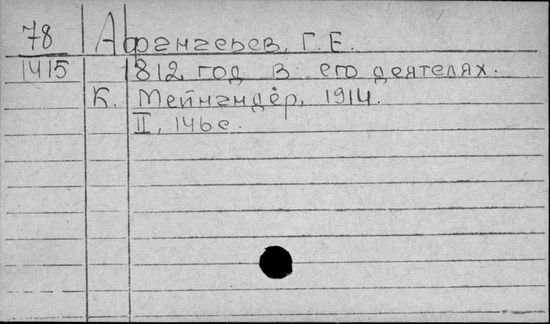 78 Афанасьев, Г. Е.
1415 1812 год в его деятелях.
К. Мейнандер, 1914.
II, 146с.